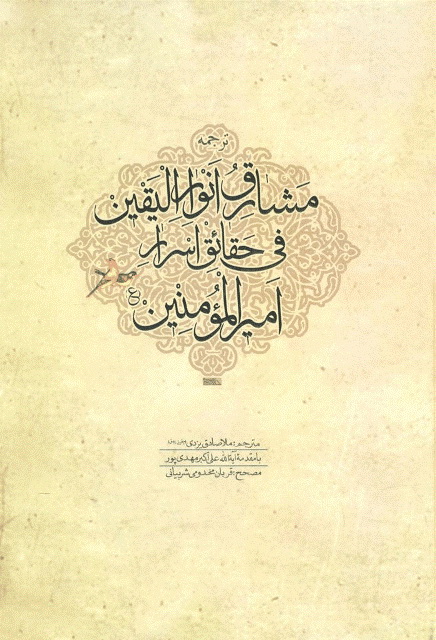 ترجمه
مَشارِقُ اَنْوارِ الْیَقین
فی حَقائِقِ اَسْرارِ
اَمیرِ الْمُؤْمِنین ع
مترجم: ملاصادق یزدی
بامقدمهٔ آیةالله علی‌اکبر مهدی‌پور
مصحح: قربان مخدومی شربیانی